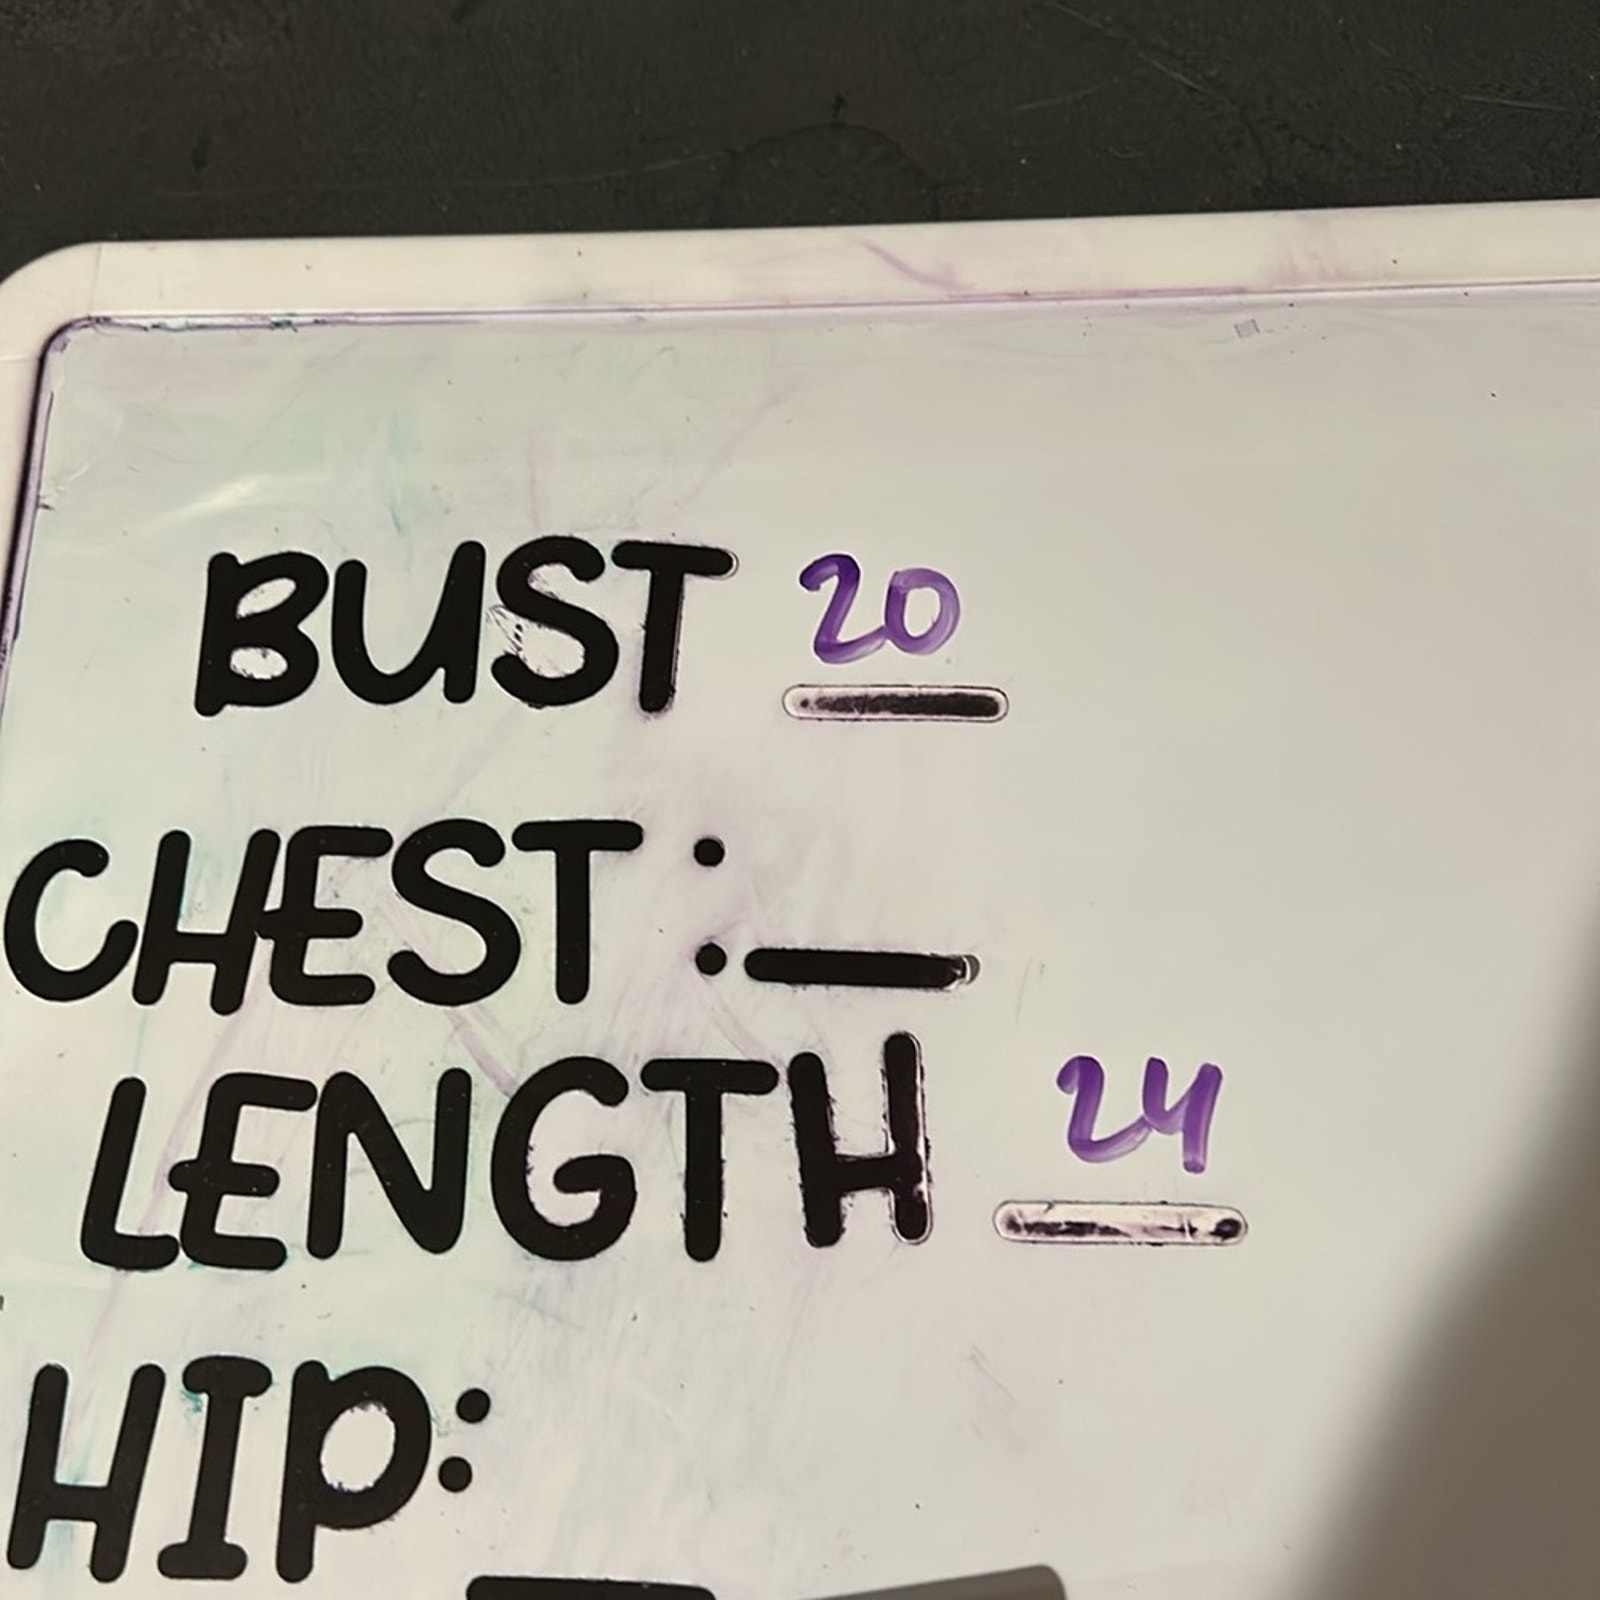 BUST 20
CHEST :
LENGTH 24
HIP: